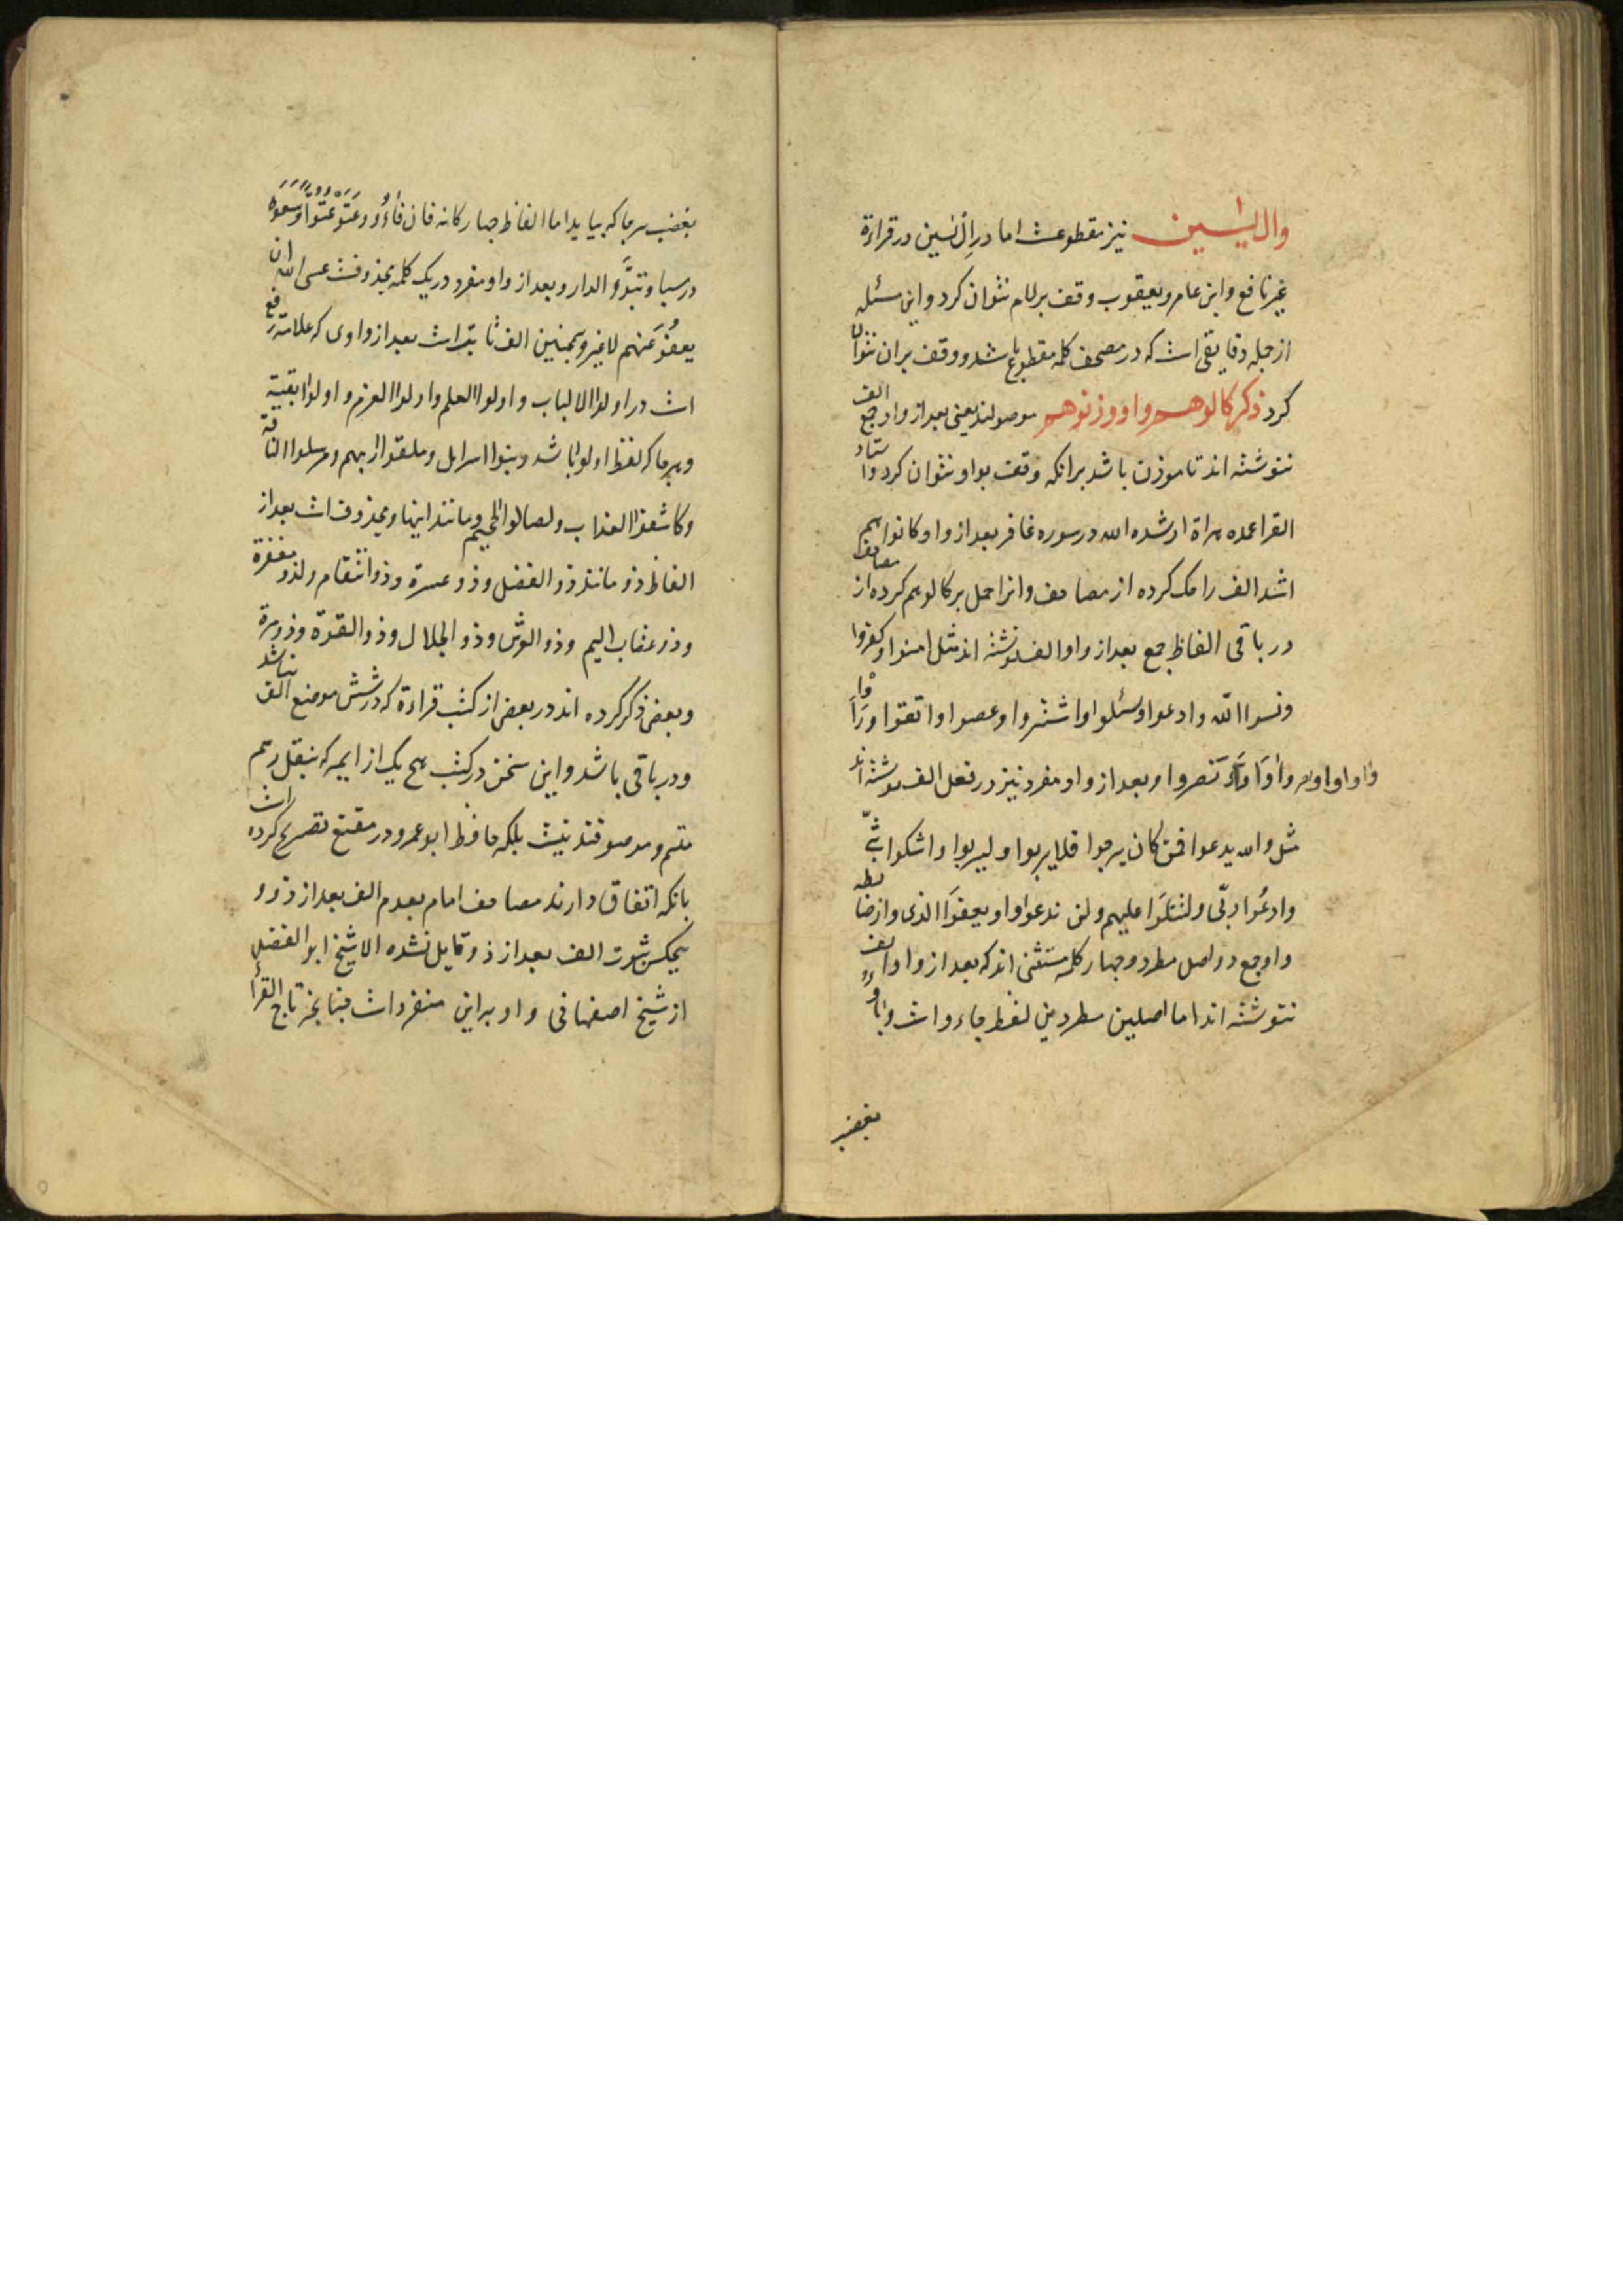 وال یٰسین نیز مقطوعست اما در اِلْ یٰسین در قراءة
غیر نافع و ابن عامر و یعقوب وقف بر لام نتوان کرد و این مسئله
از جمله دقایقی است که در مصحف کلمه مقطوع باشد و وقف بر ان نتوان
کرد ذکر کالوهم و او وزنوهم موصولند یعنی بعد از واو جمع الف
ننوشته اند تا موذن باشد برانکه وقف بواو نتوان کرد و استاد
القرا عمده مراة ارشده الله در سوره غافر بعد از واو کانوا هم
اشد الف را حک کرده از مصاحف و انرا حمل بر کالوهم کرده از مصاحف
در باقی الفاظ جمع بعد از واو الف نوشته اند مثل امنوا و کفروا
و نسوا الله و ادعوا و سئلوا و اشتروا و عصوا و اتقوا و
نصروا و بعد از واو مفرد نیز در فعل الف نوشته اند
مثل والله یدعوا فمن کان یرجوا فلا یربوا و لیربوا و اشکوا بثی
و ادعُوا ربّی و لتتلوَا علیهم و لن ندعوا و او یعفوَا الذی و از ضابطه
واو جمع دو اصل مطرد و چهار کلمه مستثنی اند که بعد از واو الف
ننوشته اند اما اصلین مطردین لفظ جاءو است و باؤ
بغضب
بغضب هر جا که بیاید اما الفاظ چهارکانه فان فاءُو و عَتَوْ عُتُوًّا و سَعَوْ
در سبا و تبوَّو الدار و بعد از واو مفرد در یک کلمه محذوفست عسی الله ان
یعفُوَ عنهم لا غیر و همچنین الف ثابت است بعد از واوی که علامت رفع
است در اولوا الالباب و اولوا العلم و اولوا العزم و اولوا بقیة
و هر جا که لفظ اولوا باشد و بنوا اسرایل و ملقوا ربهم و مرسلوا الناقة
و کاشفوا العذاب و لصالوا الجحیم و مانند اینها و محذوف است بعد از
الفاظ ذو مانند ذو الفضل و ذو عسرة و ذو انتقام و لذو مغفرة
و ذو عقاب الیم و ذو العرش و ذو الجلال و ذو القوّة و ذو مرة
و بعضی ذکر کرده اند در بعضی از کتب قراءة که در شش موضع الف نباشد
و در باقی باشد و این سخن در کتب هیچ یک از ایمه که بنقل رسم
متسم و موصوفند نیست بلکه حافظ ابو عمرو در مقنع تصریح کرده است
بانکه اتفاق دارند مصاحف امام بعدم الف بعد از ذو و
هیچکس بثبوت الف بعد از ذو قایل نشده الا شیخ ابو الفضل
از شیخ اصفهانی و او براین منفرد است چنانچه تاج القرا